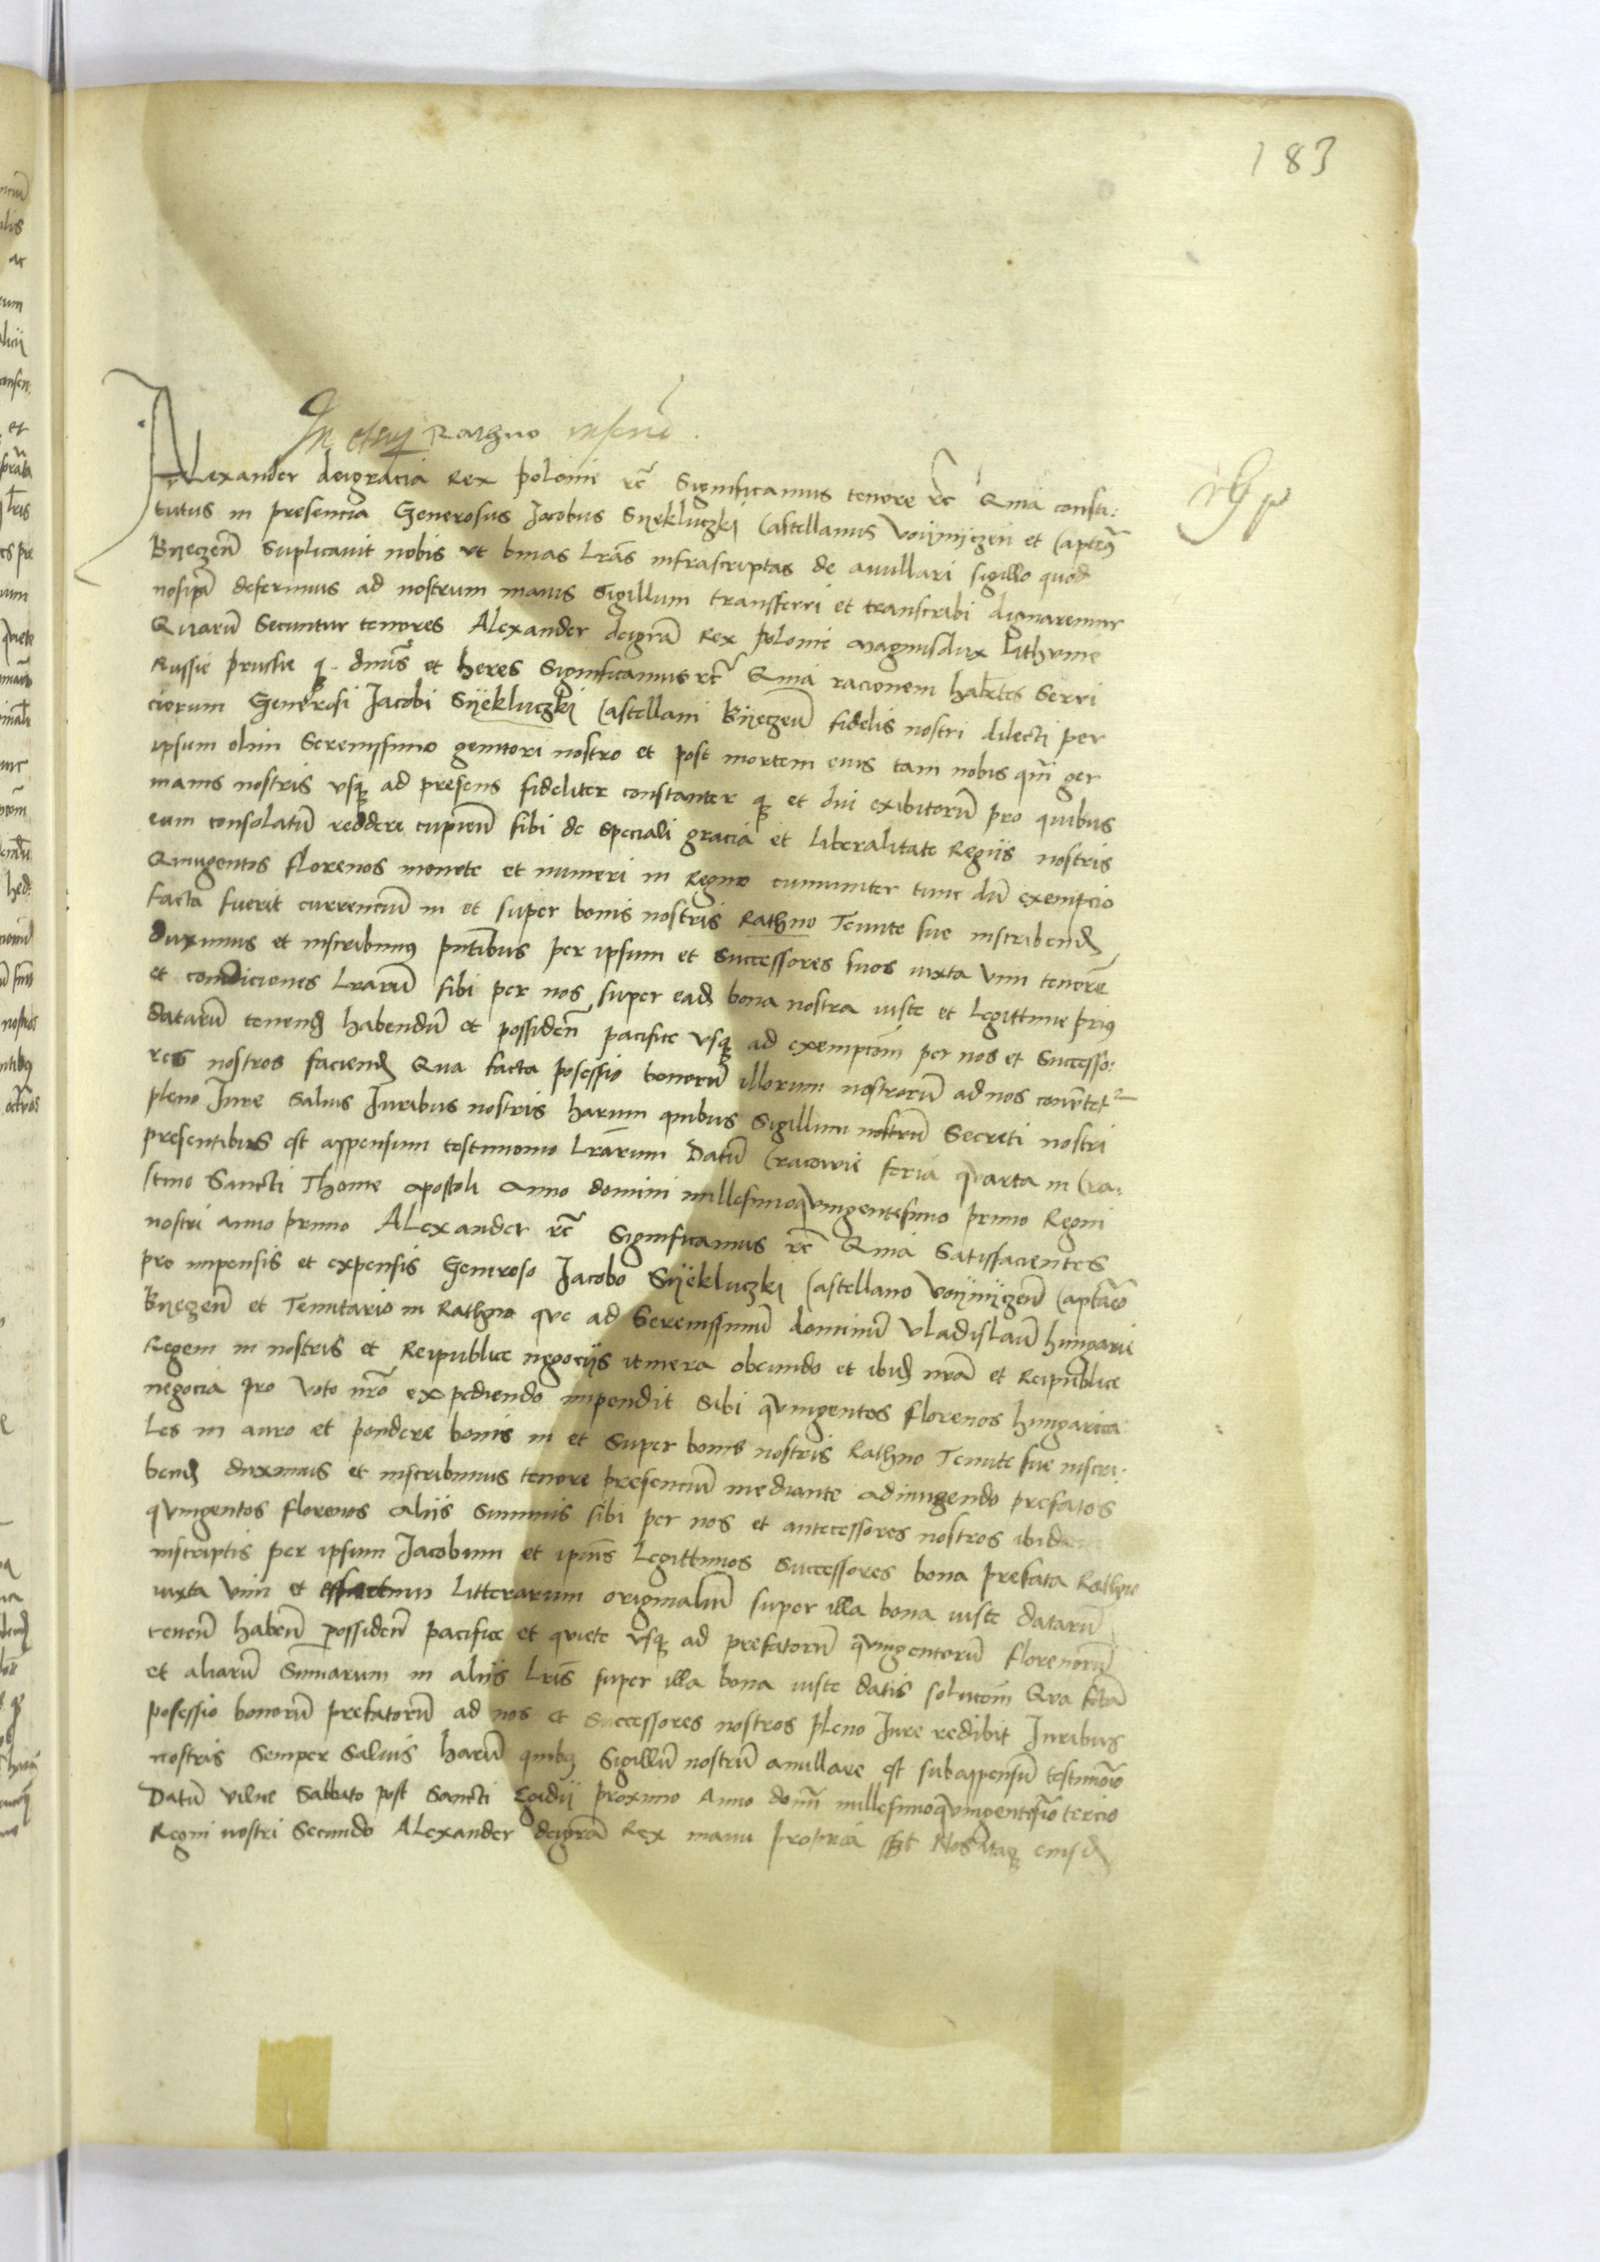 183
In Rathno
Alexander deigracia Rex polonie rc̃ Significamus tenore rc̃ Quia consti:
tutus in presencia Generosus Jacobus Syekluczki Castellanus Voynyczen̄ et Capteus
Byeczen̄ Suplicavit nobis ut binas Lrãs infrascriptas de anullari sigillo quod
nosipi deferimus ad nostrum maius Sigillum transferri et transcribi dignaremur
Quarū Secuntur tenores Alexander deigrã Rex polonie magnusdux Lithvnie
Russie prussie q̨ dnūs et heres Significamus rc̃ Quia racionem habētes Servi
ciorum Generosi Jacobi Syekluczki Castellani Byeczen̄ fidelis nostri dilecti per
ipsum olim Serenissimo genitori nostro et post mortem eius tam nobis qm̄ ger
manis nostris usq̨ ad presens fideliter constanter q̨ et diu exibitorū pro quibus
eum consolatū reddere cupien̄ sibi de speciali gracia et liberalitate Regiis nostris
Quingentos florenos monete et numeri in Regno cumuniter tunc dū exempcio
facta fuerit currenciū in et super bonis nostris Rathno Tenute sue inscribend̨
duximus et inscribimꝰ pn̄tibus per ipsum et Successores suos iuxta vim tenorē
et condiciones Lrarū sibi per nos super ead̨ bona nostra iuste et legittime priꝰ
datarū tenend̨ habendū et possiden̄ pacifice usq̨ ad exempcōm per nos et Successo:
res nostros faciend̨ Qua facta posessio bonorū illorum nostrorū ad nos convētet
pleno Jure Salvis Juribus nostris harum quibus Sigillum nostrū Secreti nostri
presentibus est appensum testimonio Lrārum Datū Cracovie feria quarta in Cra:
stino Sancti Thome apostoli Anno domini millesimoqvingentesimo primo Regni
nostri anno primo Alexander rc̃ Significamus rc̃ Quia Satisfacientes
pro impensis et expensis Generoso Jacobo Syekluczki Castellano Voynyczen̄ Captāeo
Byeczen̄ et Tenutario in Rathno que ad Serenissimū dominū Vladislaū hungarie
Regem in nostris et Reipublice negocijs itinera obeundo et ibid̨ nrã et Reipublice
negocia pro voto nr̃o expediendo impendit Sibi qvingentos florenos hungarica
les in auro et pondere bonis in et Super bonis nostris Rathno Tenute sue inscri:
bend̨ duximus et inscribimus tenore presenciū mediante adiungendo prefatos
qvingentos florenos Aliis Summis sibi per nos et antecessores nostros ibidem
inscriptis per ipsum Jacobum et ipiūs Legittimos Successores bona prefata Rathno
iuxta vim et effectum litterarum originaliū super illa bona iuste datarū
tenen̄ haben̄ possiden̄ pacifice et qviete usq̨ ad prefatorū qvingentorū florenorū
et aliarū Sumarum in aliis Lrīs super illa bona iuste datis solucōm Qva fctā
posessio bonorū prefatorū ad nos et Successores nostros pleno Jure redibit Juribus
nostris Semper Salvis harū quibꝰ Sigillū nostrū anullare est subappensū testimōio
Datū Vilne Sabbato post Sancti Egidij proximo Anno domī millesimoqvingentesīo tercio
Regni nostri Secundo Alexander deigrã Rex manu propria sst̄ Nos itaq̨ eiusd̨